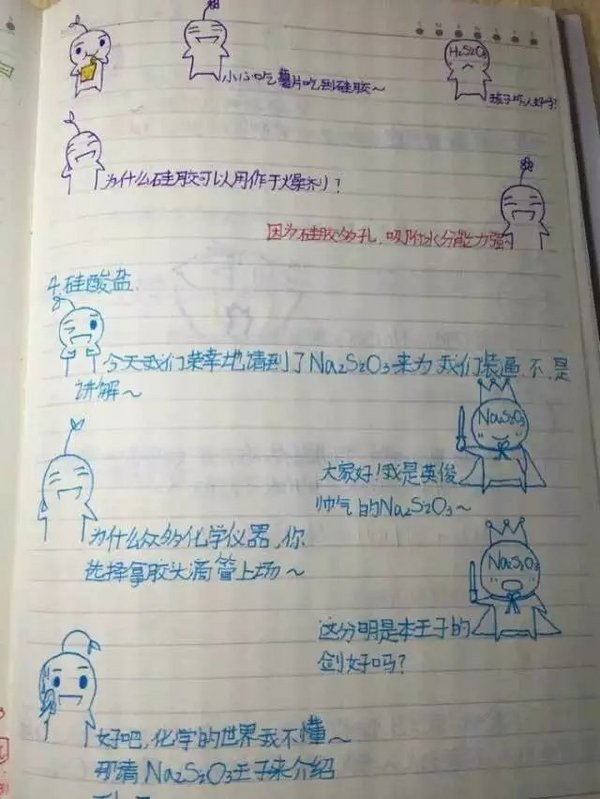 H₂S₂O₃
小心吃薯片吃到硅胶～
孩子吓人好吗?
为什么硅胶可以用作干燥剂?
因为硅胶多孔,吸附水分能力强
4.硅酸盐
今天我们荣幸地请到了Na₂S₂O₃来为我们装逼,不,是
讲解～
Na₂S₂O₃
大家好!我是英俊
帅气的Na₂S₂O₃～
为什么众多化学仪器,你
选择拿胶头滴管上场～
Na₂S₂O₃
这分明是本王子的
剑好吗?
好吧,化学的世界我不懂～
那请Na₂S₂O₃王子来介绍